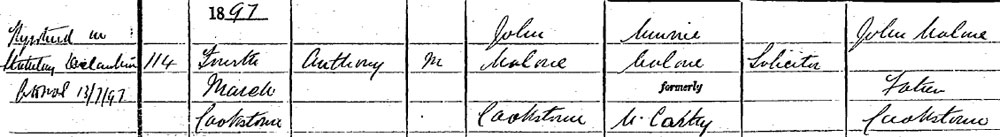 1897
Registered on John Minnie John Malone
Statutory Declaration 114 Fourth Anthony M Malone Malone Solicitor
13/7/97 March formerly Father
Cookstown Cookstown McCartey Cookstown